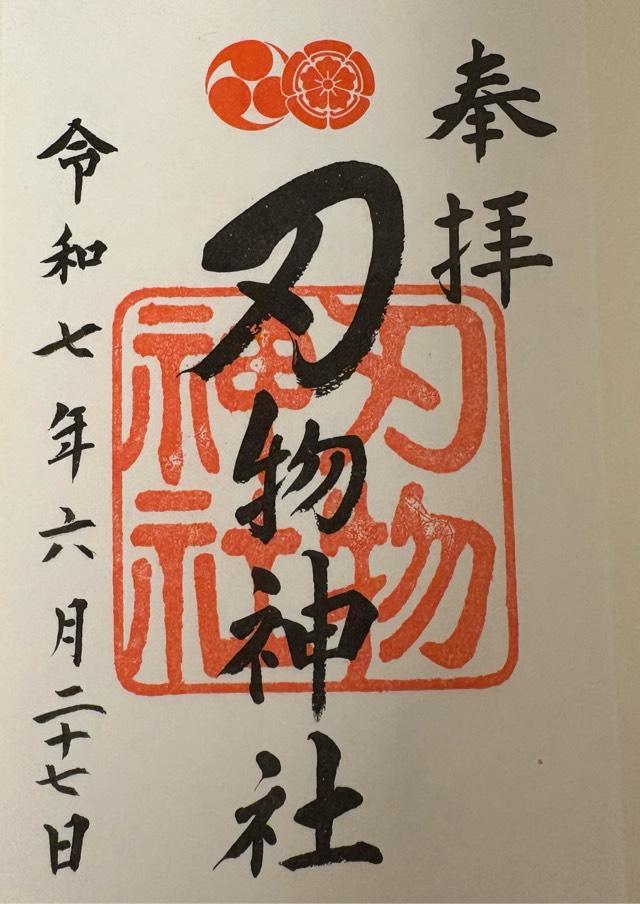 奉拝
刃物神社
刃物
神社
令和七年六月二十七日